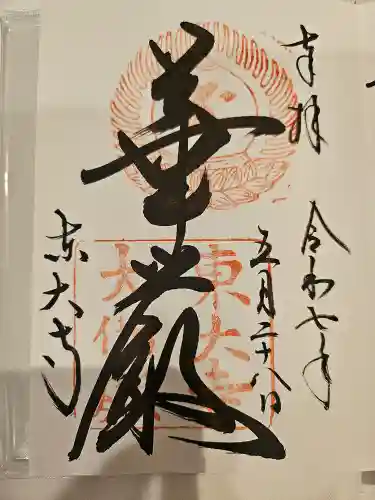 奉拝
令和七年
五月二十八日
華厳
東大寺
東大寺
大仏殿